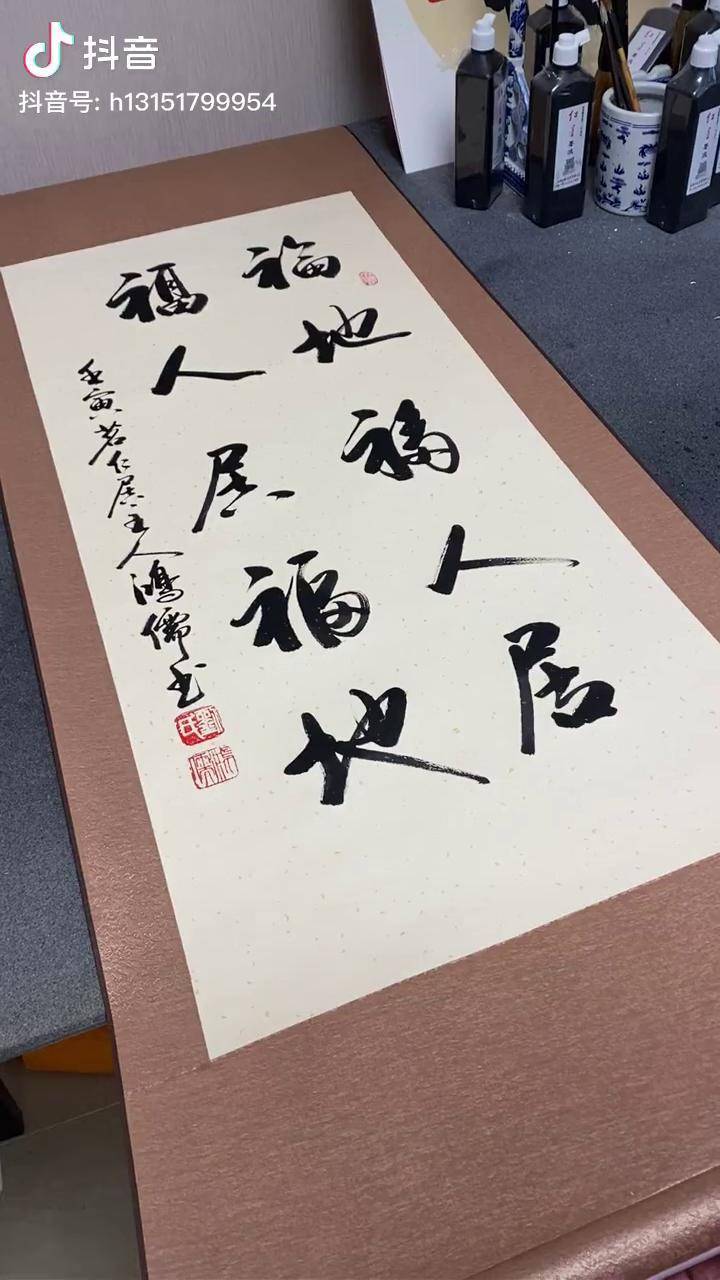 抖音
抖音号: h13151799954
福地福人居
福人居福地
壬寅茗仁居主人鸿儒书